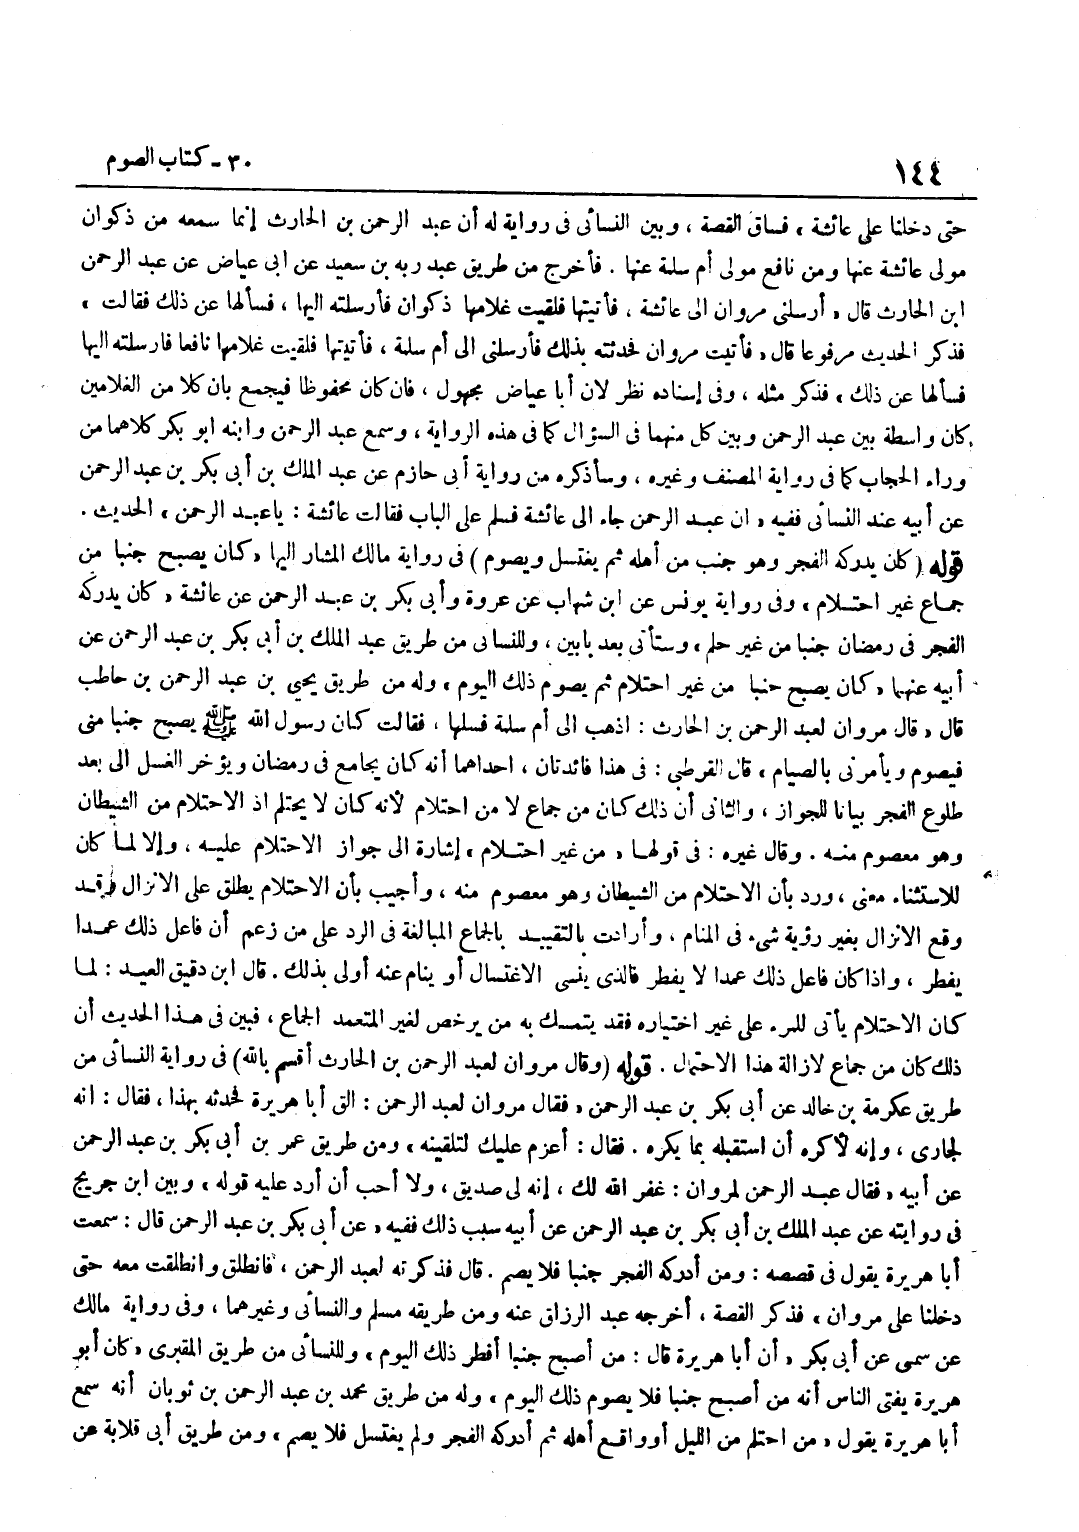 ١٤٤
٣٠ - كتاب الصوم
حتى دخلنا على عائشة » فساق القصة ، وبين النسائى فى رواية له أن عبد الرحمن بن الحارث إنما سمعه من ذكوان
مولى عائشة عنها ومن نافع مولى أم سلمة عنها . فأخرج من طريق عبد ربه بن سعيد عن ابى عياض عن عبد الرحمن
ابن الحارث قال « أرسلنى مروان الى عائشة ، فأتيتها فلقيت غلامها ذكوان فأرسلته اليها ، فسألها عن ذلك فقالت »
فذكر الحديث مرفوعا قال « فأتيت مروان فحدثته بذلك فأرسلنى الى أم سلمة ، فأتيتها فلقيت غلامها نافعا فارسلته اليها
فسألها عن ذلك » فذكر مثله ، وفى إسناده نظر لان أبا عياض مجهول ، فان كان محفوظا فيجمع بان كلا من الغلامين
كان واسطة بين عبد الرحمن وبين كل منهما فى السؤال كما فى هذه الرواية ، وسمع عبد الرحمن وابنه ابو بكر كلاهما من
وراء الحجاب كما فى رواية المصنف وغيره ، وسأذكره من رواية أبى حازم عن عبد الملك بن أبى بكر بن عبد الرحمن
عن أبيه عند النسائى ففيه « ان عبد الرحمن جاء الى عائشة فسلم على الباب فقالت عائشة : ياعبد الرحمن » الحديث .
قوله (كان يدركه الفجر وهو جنب من أهله ثم يغتسل ويصوم ) فى رواية مالك المشار اليها « كان يصبح جنبا من
جماع غير احتلام » وفى رواية يونس عن ابن شهاب عن عروة وأبى بكر بن عبد الرحمن عن عائشة « كان يدركه
الفجر فى رمضان جنبا من غير حلم » وستأتى بعد بابين ، وللنسائى من طريق عبد الملك بن أبى بكر بن عبد الرحمن عن
أبيه عنهما « كان يصبح جنبا من غير احتلام ثم يصوم ذلك اليوم » وله من طريق يحيي بن عبد الرحمن بن حاطب
قال « قال مروان لعبد الرحمن بن الحارث : اذهب الى أم سلمة فسلها ، فقالت كان رسول الله ﷺ يصبح جنبا منى
فيصوم ويأمرنى بالصيام » قال القرطبى : فى هذا فائدتان ، احداهما أنه كان يجامع فى رمضان ويؤخر الغسل الى بعد
طلوع الفجر بيانا للجواز ، والثانى أن ذلك كان من جماع لا من احتلام لأنه كان لا يحتلم اذ الاحتلام من الشيطان
وهو معصوم منه . وقال غيره : فى قولها « من غير احتلام » إشارة الى جواز الاحتلام عليه ، وإلا لما كان
للاستثناء معنى ، ورد بأن الاحتلام من الشيطان وهو معصوم منه ، وأجيب بأن الاحتلام يطلق على الانزال وقد
وقع الانزال بغير رؤية شىء فى المنام ، وأرادت بالتقييد بالجماع المبالغة فى الرد على من زعم أن فاعل ذلك عمدا
يفطر ، واذا كان فاعل ذلك عمدا لا يفطر فالذى ينسى الاغتسال أو ينام عنه أولى بذلك . قال ابن دقيق العيد : لما
كان الاحتلام يأتى للمرء على غير اختياره فقد يتمسك به من يرخص لغير المتعمد الجماع ، فبين فى هذا الحديث أن
ذلك كان من جماع لازالة هذا الاحتمال . قوله (وقال مروان لعبد الرحمن بن الحارث أقسم بالله) فى رواية النسائى من
طريق عكرمة بن خالد عن أبى بكر بن عبد الرحمن « فقال مروان لعبد الرحمن : الق أبا هريرة فحدثه بهذا ، فقال : انه
لجارى ، وإنه لأكره أن استقبله بما يكره . فقال : أعزم عليك لتلقينه » ومن طريق عمر بن أبى بكر بن عبد الرحمن
عن أبيه « فقال عبد الرحمن لمروان : غفر الله لك ، إنه لى صديق ، ولا أحب أن أرد عليه قوله » وبين ابن جريج
فى روايته عن عبد الملك بن أبى بكر بن عبد الرحمن عن أبيه سبب ذلك ففيه « عن أبى بكر بن عبد الرحمن قال : سمعت
أبا هريرة يقول فى قصصه : ومن أدركه الفجر جنبا فلا يصم . قال فذكرته لعبد الرحمن ، فانطلق وانطلقت معه حتى
دخلنا على مروان » فذكر القصة ، أخرجه عبد الرزاق عنه ومن طريقه مسلم والنسائى وغيرهما ، وفى رواية مالك
عن سمى عن أبى بكر « أن أبا هريرة قال : من أصبح جنبا أفطر ذلك اليوم » وللنسائى من طريق المقبرى « كان أبو
هريرة يفتى الناس أنه من أصبح جنبا فلا يصوم ذلك اليوم » وله من طريق محمد بن عبد الرحمن بن ثوبان أنه سمع
أبا هريرة يقول « من احتلم من الليل أو واقع أهله ثم أدركه الفجر ولم يغتسل فلا يصم » ومن طريق أبى قلابة عن